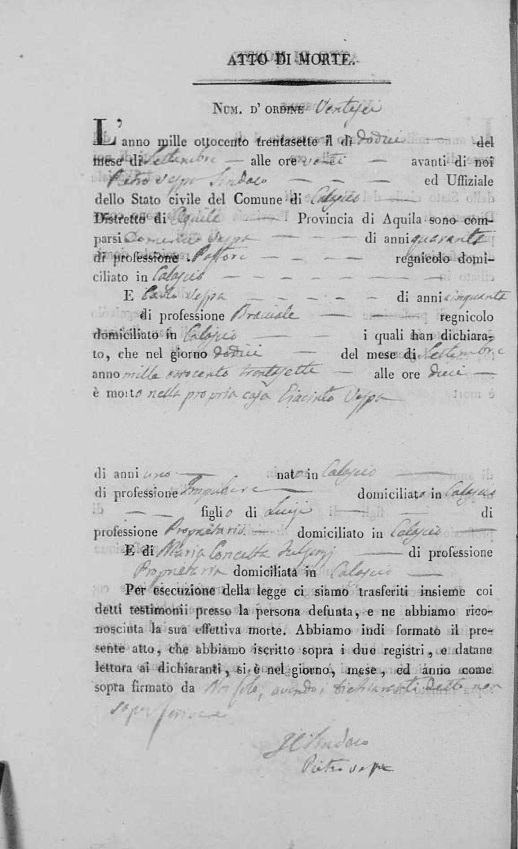 ATTO DI MORTE.
NUM. D' ORDINE Ventisei
L'anno mille ottocento trentasette il dì dodici del
mese di Settembre alle ore venti avanti di noi
Pietro Vespa Sindaco ed Uffiziale
dello Stato civile del Comune di Calascio
Distretto di Aquila Provincia di Aquila sono com-
parsi Domenico Vespa di anni quaranta
di professione Pastore regnicolo domi-
ciliato in Calascio
E Carlo Vespa di anni cinquanta
di professione Bracciale regnicolo
domiciliato in Calascio i quali han dichiara-
to, che nel giorno dodici del mese di Settembre
anno mille ottocento trentasette alle ore dieci
è morto nella propria casa Giacinto Vespa
di anni uno nato in Calascio
di professione domiciliato in Calascio
figlio di Luigi di
professione Proprietario domiciliato in Calascio
E di Maria Concetta di professione
Proprietaria domiciliata in Calascio
Per esecuzione della legge ci siamo trasferiti insieme coi
detti testimonii presso la persona defunta, e ne abbiamo rico-
nosciuta la sua effettiva morte. Abbiamo indi formato il pre-
sente atto, che abbiamo iscritto sopra i due registri, e datane
lettura ai dichiaranti, si è nel giorno, mese, ed anno come
sopra firmato da Noi solo, avendo i dichiaranti detto non
saper scrivere
Il Sindaco
Pietro Vespa